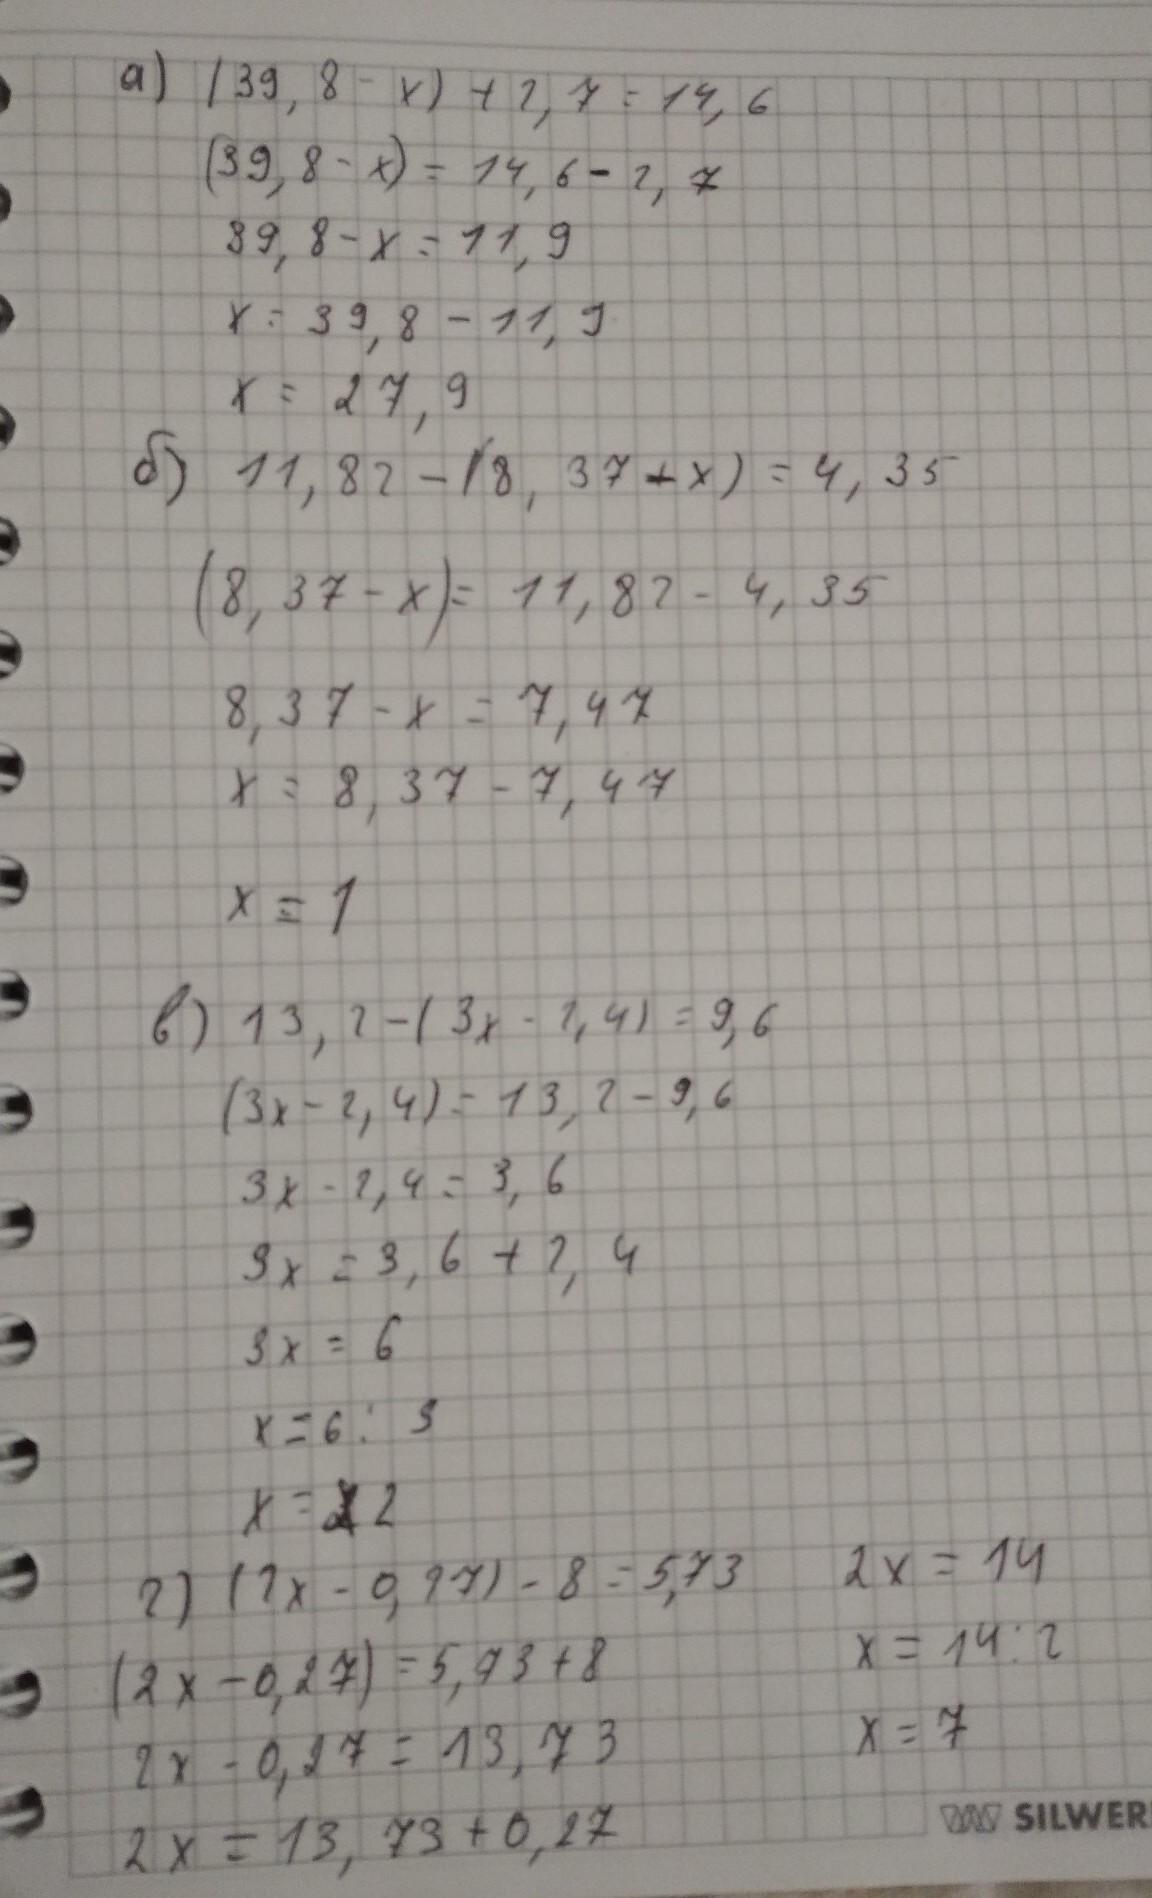 а) (39,8 - x) + 2,7 = 14,6
(39,8 - x) = 14,6 - 2,7
39,8 - x = 11,9
x = 39,8 - 11,9
x = 27,9
б) 11,82 - (8,37 + x) = 4,35
(8,37 - x) = 11,82 - 4,35
8,37 - x = 7,47
x = 8,37 - 7,47
x = 1
в) 13,2 - (3x - 2,4) = 9,6
(3x - 2,4) = 13,2 - 9,6
3x - 2,4 = 3,6
3x = 3,6 + 2,4
3x = 6
x = 6 : 3
x = 2
г) (2x - 0,27) - 8 = 5,73
(2x - 0,27) = 5,73 + 8
2x - 0,27 = 13,73
2x = 13,73 + 0,27
2x = 14
x = 14 : 2
x = 7
SILWER